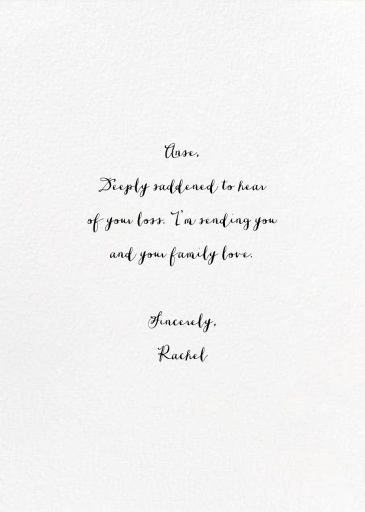 Anse,
Deeply saddened to hear
of your loss. I'm sending you
and your family love.
Sincerely,
Rachel